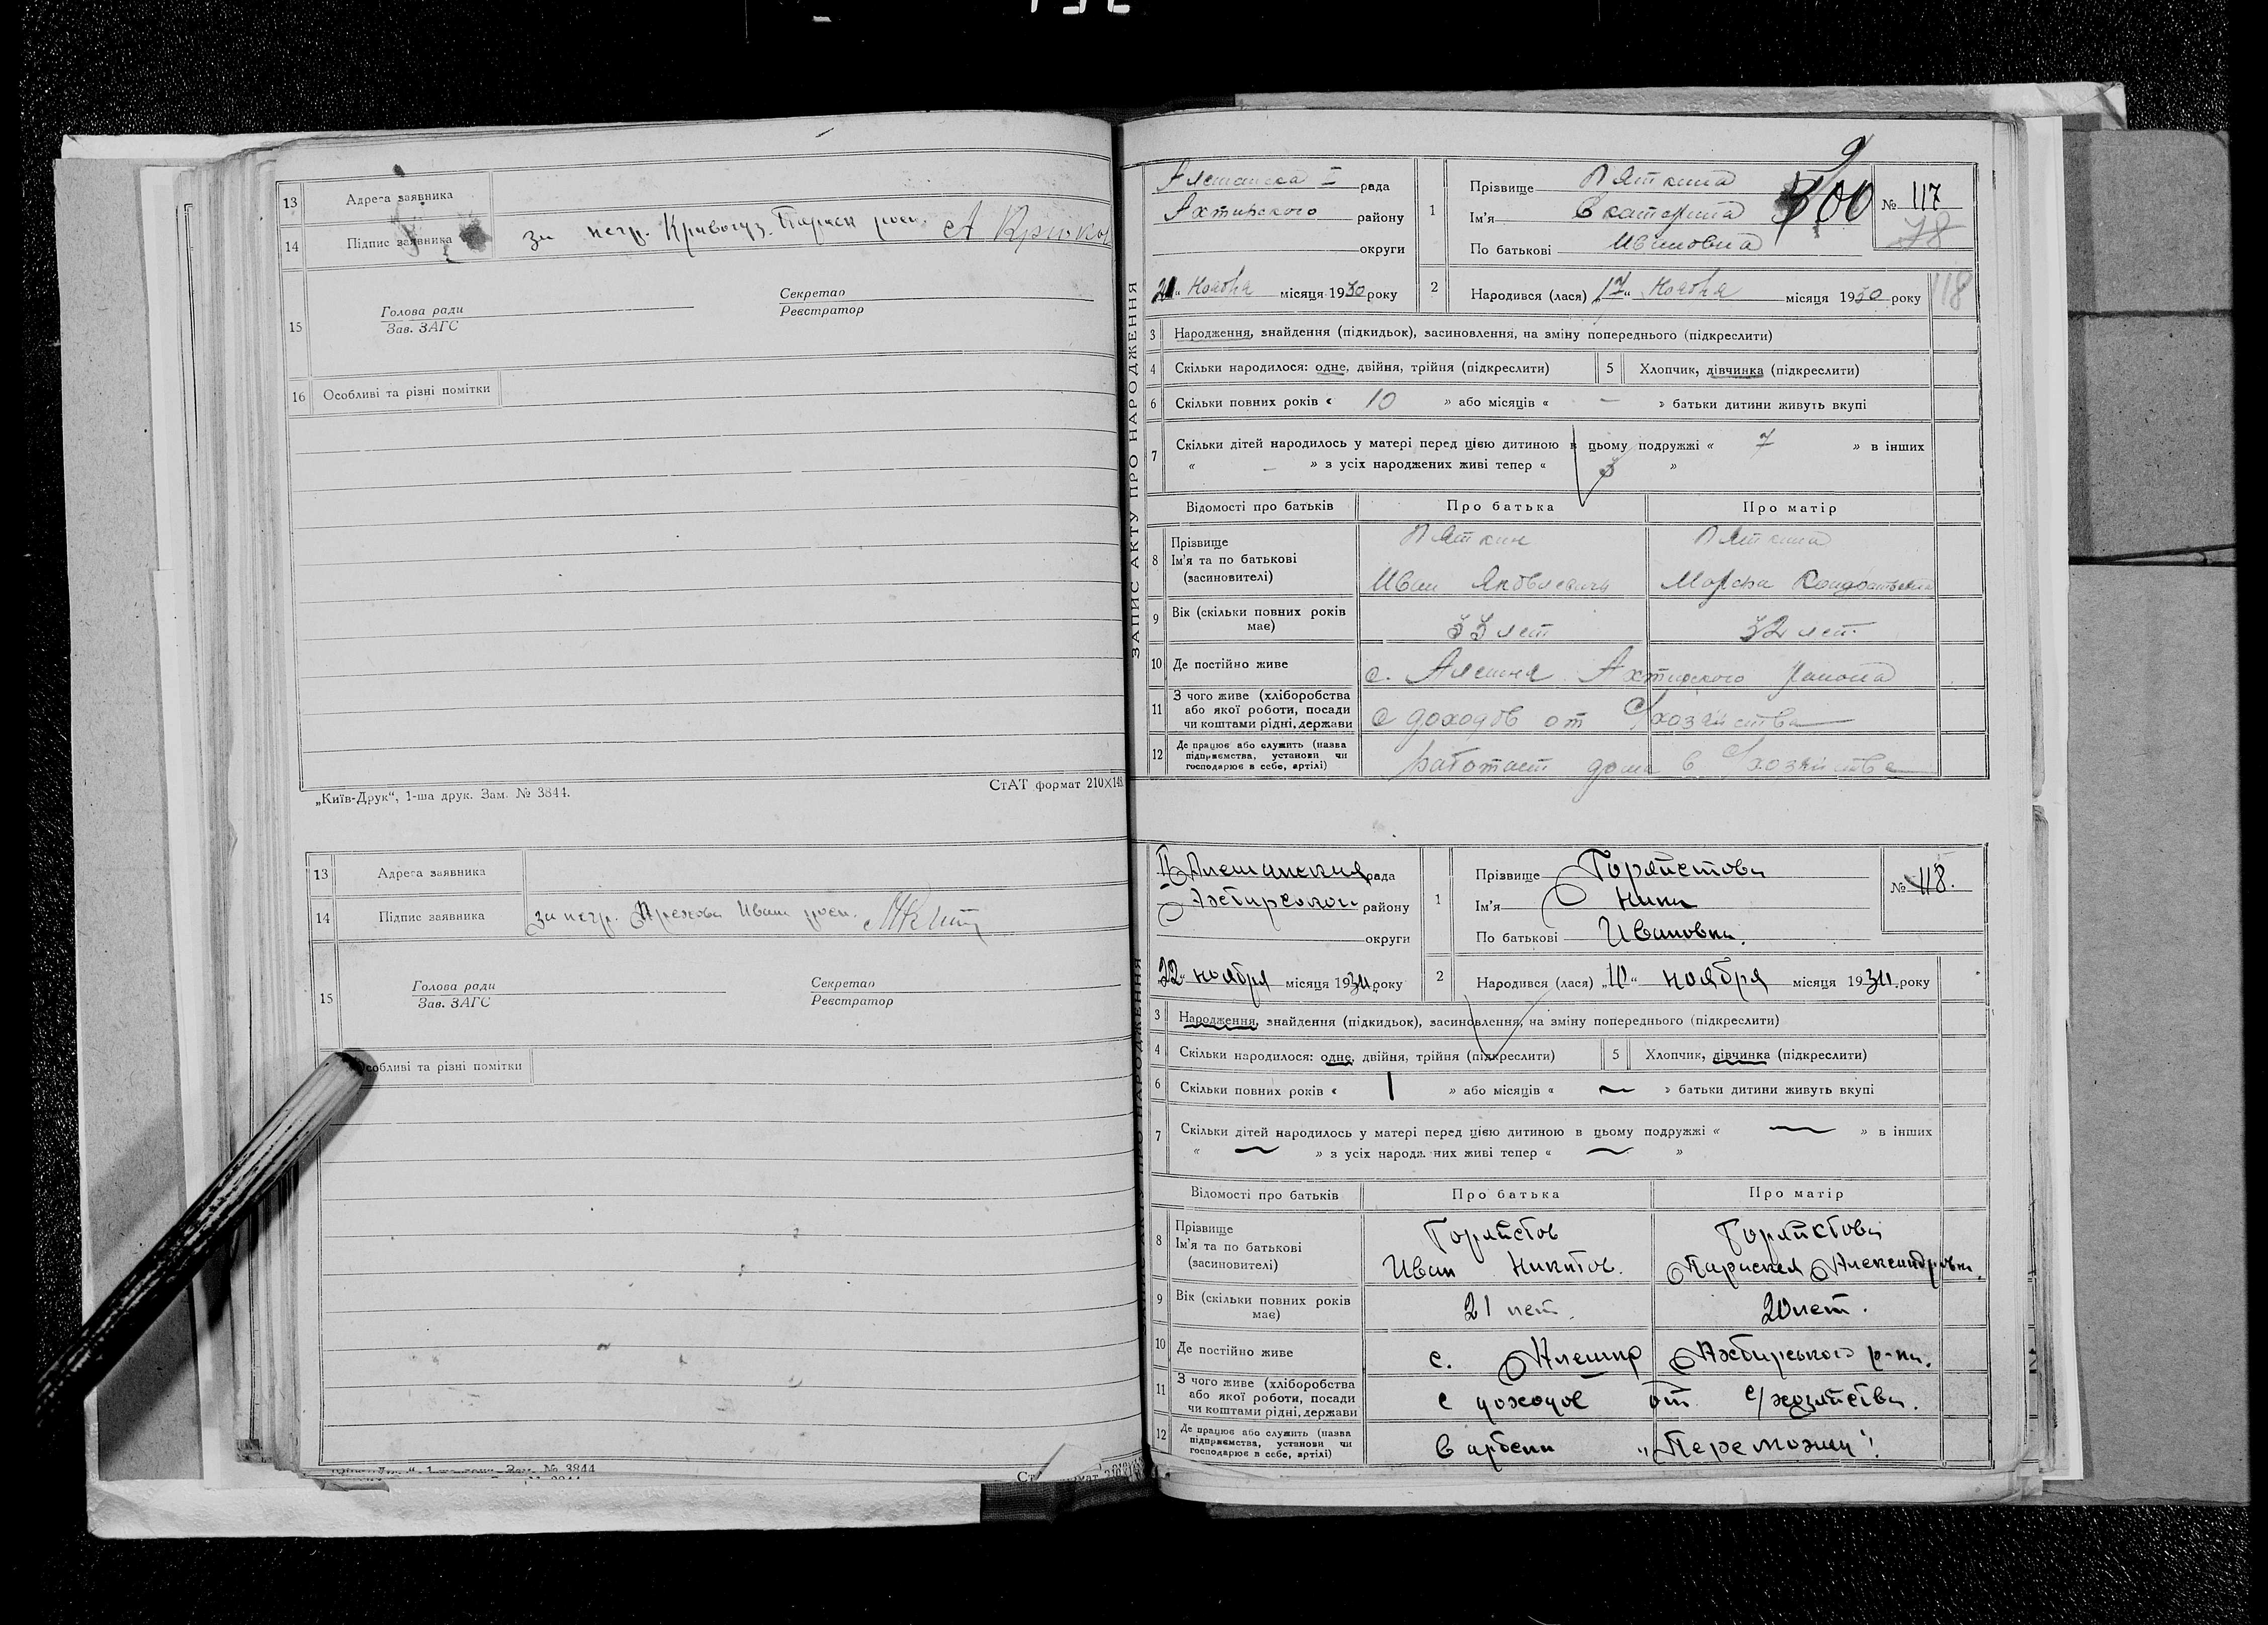 13 Адреса заявника
14 Підпис заявника за негр. Кривогуз. Параск росп. А Крюков
15 Голова ради Секретар
Зав. ЗАГС Реєстратор
16 Особливі та різні помітки
„Київ-Друк“, 1-ша друк. Зам. № 3844. СтАТ формат 210×148
13 Адреса заявника
14 Підпис заявника за негр. Иван росп.
15 Голова ради Секретар
Зав. ЗАГС Реєстратор
Особливі та різні помітки
1-ша друк. Зам. № 3844
ЗАПИС АКТУ ПРО НАРОДЖЕННЯ
Алешанска I рада
Ахтирского району
округи
21 Ноября місяця 1930 року
1 Прізвище Пяткина
Ім'я Екатерина
По батькові Ивановна
9
300
№ 117
78
2 Народився (лася) „17“ Ноября місяця 1930 року
118
3 Народження, знайдення (підкидьок), засиновлення, на зміну попереднього (підкреслити)
4 Скільки народилося: одне, двійня, трійня (підкреслити) 5 Хлопчик, дівчинка (підкреслити)
6 Скільки повних років « 10 » або місяців « — » батьки дитини живуть вкупі
7 Скільки дітей народилось у матері перед цією дитиною в цьому подружжі « 7 » в інших
« — » з усіх народжених живі тепер « 3 »
Відомості про батьків Про батька Про матір
8 Прізвище Пяткин Пяткина
Ім'я та по батькові
(засиновителі) Иван Яковлевич Марфа
9 Вік (скільки повних років має) 33 лет 32 лет.
10 Де постійно живе с. Алешня Ахтирского района
11 З чого живе (хліборобства або якої роботи, посади чи коштами рідні, держави с доходов от С/хозяйства
12 Де працює або служить (назва підприємства, установи чи господарює в себе, артілі) Работает дома в С/хозяйстве
II Алешанская рада
Ахтирского району
округи
22 ноября місяця 1930 року
1 Прізвище Горяйстова
Ім'я Нина
По батькові Ивановна.
№ 118.
2 Народився (лася) „10“ ноября місяця 1930 року
3 Народження, знайдення (підкидьок), засиновлення, на зміну попереднього (підкреслити)
4 Скільки народилося: одне, двійня, трійня (підкреслити) 5 Хлопчик, дівчинка (підкреслити)
6 Скільки повних років « 1 » або місяців « — » батьки дитини живуть вкупі
7 Скільки дітей народилось у матері перед цією дитиною в цьому подружжі « — » в інших
« — » з усіх народжених живі тепер « — »
Відомості про батьків Про батька Про матір
8 Прізвище Горяйстов Горяйстова
Ім'я та по батькові
(засиновителі) Иван Никитов. Париския Александровна.
9 Вік (скільки повних років має) 21 лет. 20 лет.
10 Де постійно живе с. Алешня Ахтирського р-на.
11 З чого живе (хліборобства або якої роботи, посади чи коштами рідні, держави с доходов от с/хозяйства.
12 Де працює або служить (назва підприємства, установи чи господарює в себе, артілі) В артели „Переможец“.